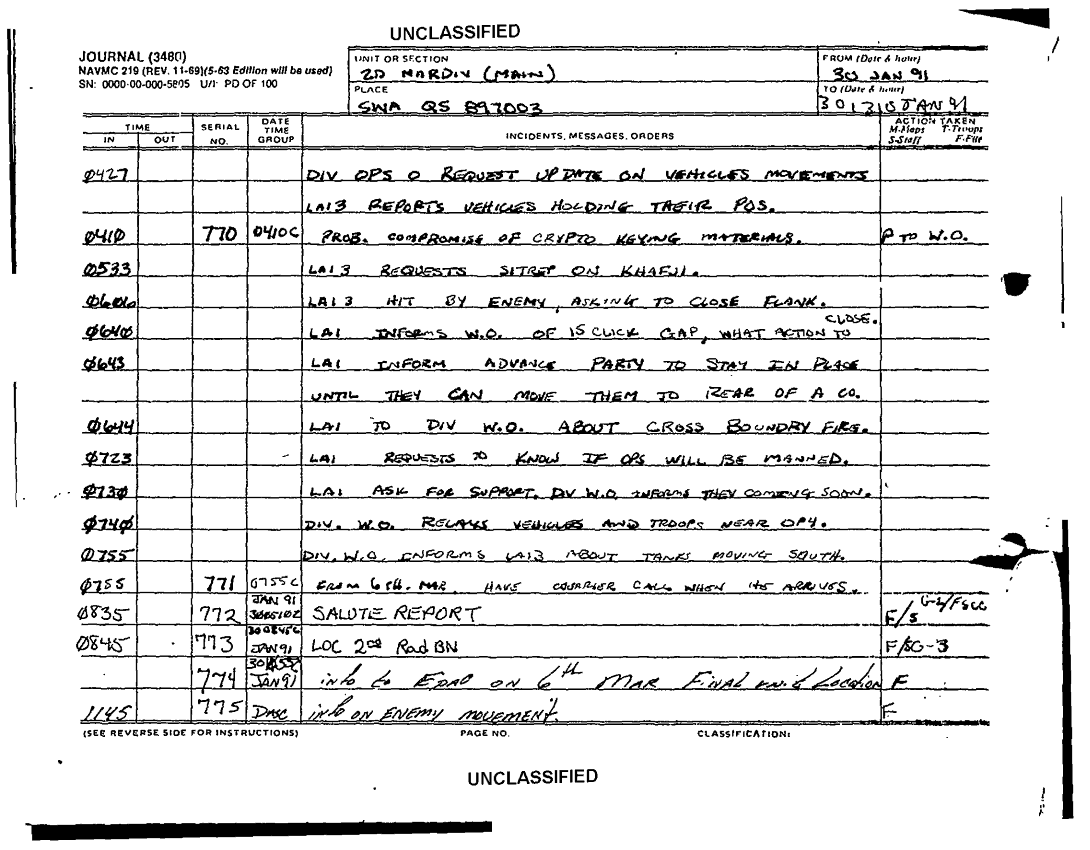 UNCLASSIFIED
JOURNAL (3480)
NAVMC 219 (REV. 11-69)(5-63 Edition will be used)
SN: 0000-00-000-5805 U/I: PD OF 100
UNIT OR SECTION
2D MARDIV (MAIN)
PLACE
SWA QS 897003
FROM (Date & hour)
30 JAN 91
TO (Date & hour)
JAN 91
TIME
IN OUT
SERIAL NO.
DATE TIME GROUP
INCIDENTS, MESSAGES, ORDERS
ACTION TAKEN
M-Maps T-Troops
S-Staff F-File
0427 DIV OPS O REQUEST UPDATE ON VEHICLES MOVEMENTS
LAI3 REPORTS VEHICLES HOLDING THEIR POS.
0410 770 0410C PROB. COMPROMISE OF CRYPTO KEYING MATERIALS. P TO W.O.
0533 LAI 3 REQUESTS SITREP ON KHAFJI.
0606 LAI 3 HIT BY ENEMY, ASKING TO CLOSE FLANK.
0640 LAI INFORMS W.O. OF 15 CLICK GAP, WHAT ACTION TO CLOSE.
0643 LAI INFORM ADVANCE PARTY TO STAY IN PLACE
UNTIL THEY CAN MOVE THEM TO REAR OF A CO.
0644 LAI TO DIV W.O. ABOUT CROSS BOUNDRY FIRE.
0723 LAI REQUESTS TO KNOW IF OPS WILL BE MANNED.
0730 LAI ASK FOR SUPPORT. DIV W.O. INFORMS THEY COMING SOON.
0740 DIV. W.O. RELAYS VEHICLES AND TROOPS NEAR OP4.
0755 DIV. W.O. INFORMS LAI3 ABOUT TANKS MOVING SOUTH.
0755 771 0755C FROM 6TH. MAR. HAVE COURRIER CALL WHEN ARRIVES.
0835 772 JAN 91 SALUTE REPORT F/S G-2/FSCC
0845 773 300845C JAN 91 LOC 2nd Rad BN F/SG-3
774 JAN 91 info to EPAO ON 6th MAR FINAL Location F
1145 775 DASC info ON ENEMY MOVEMENT. F
(SEE REVERSE SIDE FOR INSTRUCTIONS) PAGE NO. CLASSIFICATION:
UNCLASSIFIED